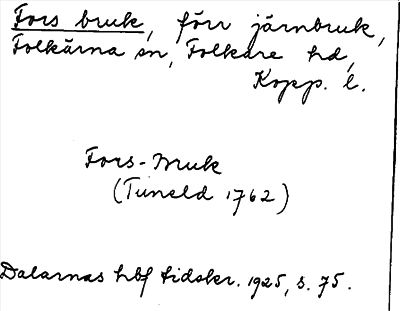 Fors bruk, förr järnbruk,
Folkärna sn, Folkare hd,
Kopp. l.
Fors-Bruk
(Tuneld 1762)
Dalarnas hbf tidskr. 1925, s. 75.